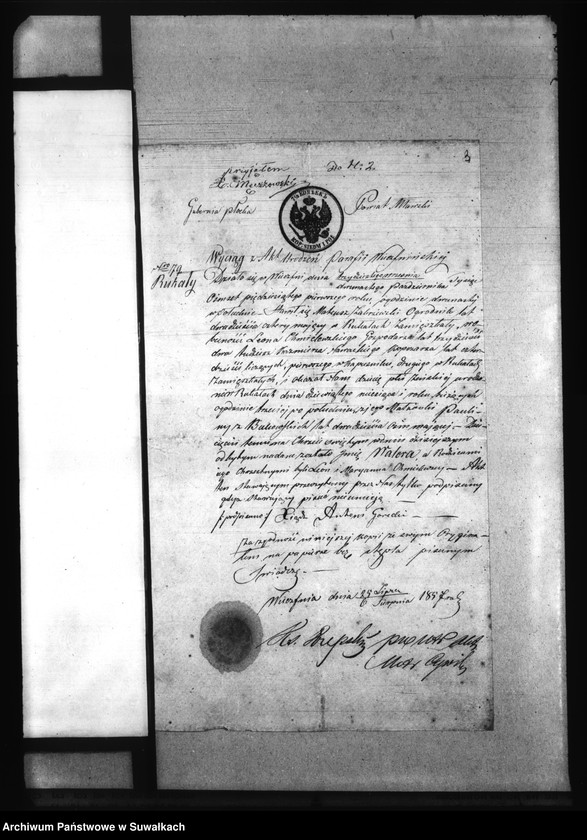 3
przyjąłem Do N: 2.
Gubernia Płocka Powiat Mławski
Wyciąg z Akt Urodzeń Parafii
Nro 79
Rukały
Działo się w dnia
dwunastego Października Tysiąc
Ośmset pięćdziesiątego pierwszego roku, o godzinie dwunastej
w południe. Stawił się Mateusz Ogrodnik lat
dwadzieścia cztery mający w Rukałach zamieszkały, w o-
becności Leona Chmielewskiego Gospodarza lat trzydzieści
dwa tudzież Kazimierza lat czter-
dzieści liczących, pierwszego w drugiego w Rukałach
zamieszkałych, i okazał Nam dziecię płci żeńskiej urodzo-
ne w Rukałach dnia dziewiątego miesiąca i roku bieżących
o godzinie trzeciej po południu, z jego Małżonki Pauli-
ny z lat dwadzieścia ośm mającej. Dzie-
cięciu temu na Chrzcie świętym w dniu dzisiejszym
odbytym nadane zostało Imię Walera, a Rodzicami
jego Chrzestnymi byli Leon i Maryanna Akt
ten stawającym przeczytany przez Nas tylko podpisany
gdyż stawający pisać nie umieją
/podpisano/ Xiądz Antoni Górecki
Za zgodność niniejszej kopii ze swym Orygina-
łem na papierze bez stępla pisanym
Świadczę.
dnia 25 Lipca / 6 Sierpnia 1857 roku
Archiwum Państwowe w Suwałkach